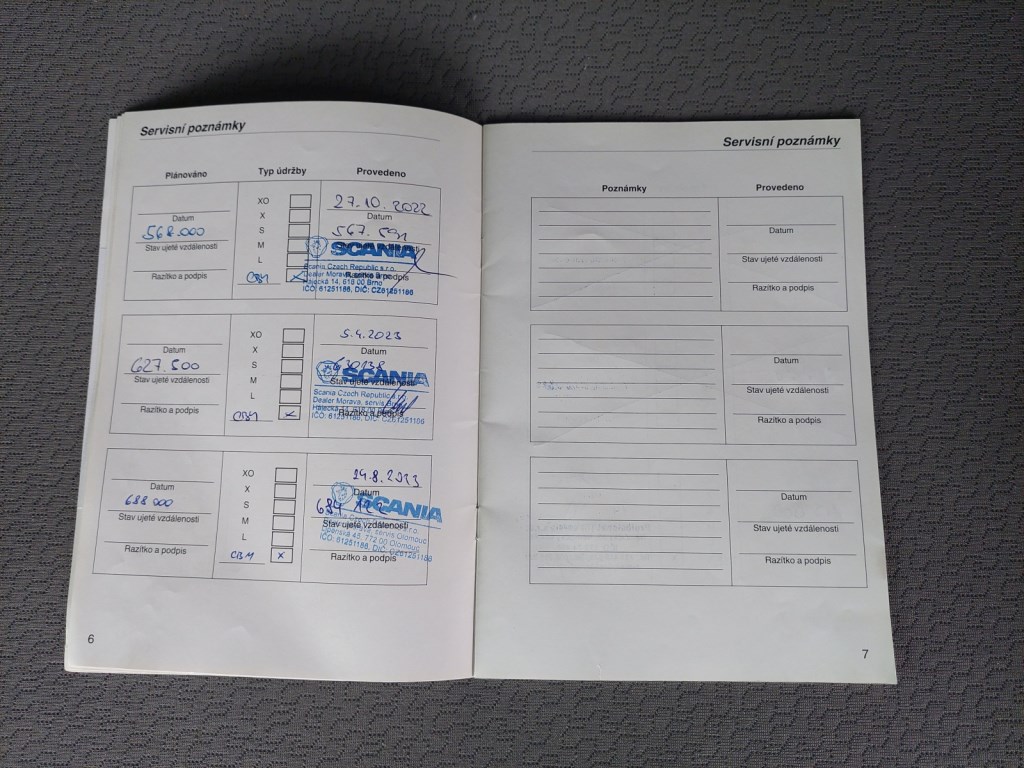 Servisní poznámky
Plánováno Typ údržby Provedeno
XO
27.10.2022
X
Datum
Datum
568.000
S
567.591
Stav ujeté vzdálenosti
M
SCANIA
L
Scania Czech Republic s.r.o.
Razítko a podpis
Dealer Morava, servis Brno
Razítko a podpis
CBM
X
Hájecká 14, 618 00 Brno
IČO: 61251186, DIČ: CZ61251186
XO
5.4.2023
X
Datum
Datum
627.500
S
630138
SCANIA
Stav ujeté vzdálenosti
M
Stav ujeté vzdálenosti
L
Scania Czech Republic s.r.o.
Dealer Morava, servis Brno
Razítko a podpis
Razítko a podpis
CBM
X
IČO: 61251186, DIČ: CZ61251186
XO
14.8.2023
X
Datum
Datum
688 000
S
684
SCANIA
Stav ujeté vzdálenosti
M
Stav ujeté vzdálenosti
L
servis Olomouc
45, 772 00 Olomouc
Razítko a podpis
IČO: 61251186, DIČ: CZ61251186
CBM
X
Razítko a podpis
6
Servisní poznámky
Poznámky Provedeno
Datum
Stav ujeté vzdálenosti
Razítko a podpis
Datum
Stav ujeté vzdálenosti
Razítko a podpis
Datum
Stav ujeté vzdálenosti
Razítko a podpis
7